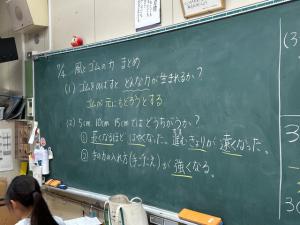 7/4 風とゴムの力 まとめ
(1) ゴムをのばすと どんな力が生まれるか？
ゴムが 元にもどろうとする
(2) 5cm 10cm 15cmではどうちがうか？
① 長くなるほど はやくなった。進むきょりが 遠くなった。
② 手の力の入れ方(手ごたえ)が 強くなる。
(3)